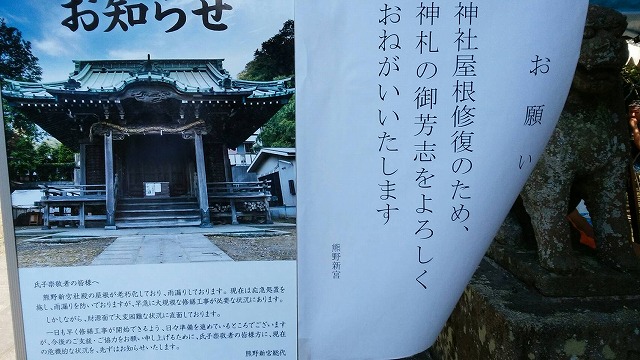 お知らせ
氏子崇敬者の皆様へ
熊野新宮社殿の屋根が老朽化しており、雨漏りしております。現在は応急処置を
施し、雨漏りを防いでおりますが、早急に大規模な修繕工事が必要な状況にあります。
しかしながら、財源面で大変困難な状況に直面しております。
一日も早く修繕工事が開始できるよう、日々準備を進めているところでございます
が、今後のご支援・ご協力をお願い申し上げるために、氏子崇敬者皆様方に、現在
の危機的な状況を、先ずはお知らせいたします。
熊野新宮総代
お願い
神社屋根修復のため、
神札の御芳志をよろしく
おねがいいたします
熊野新宮